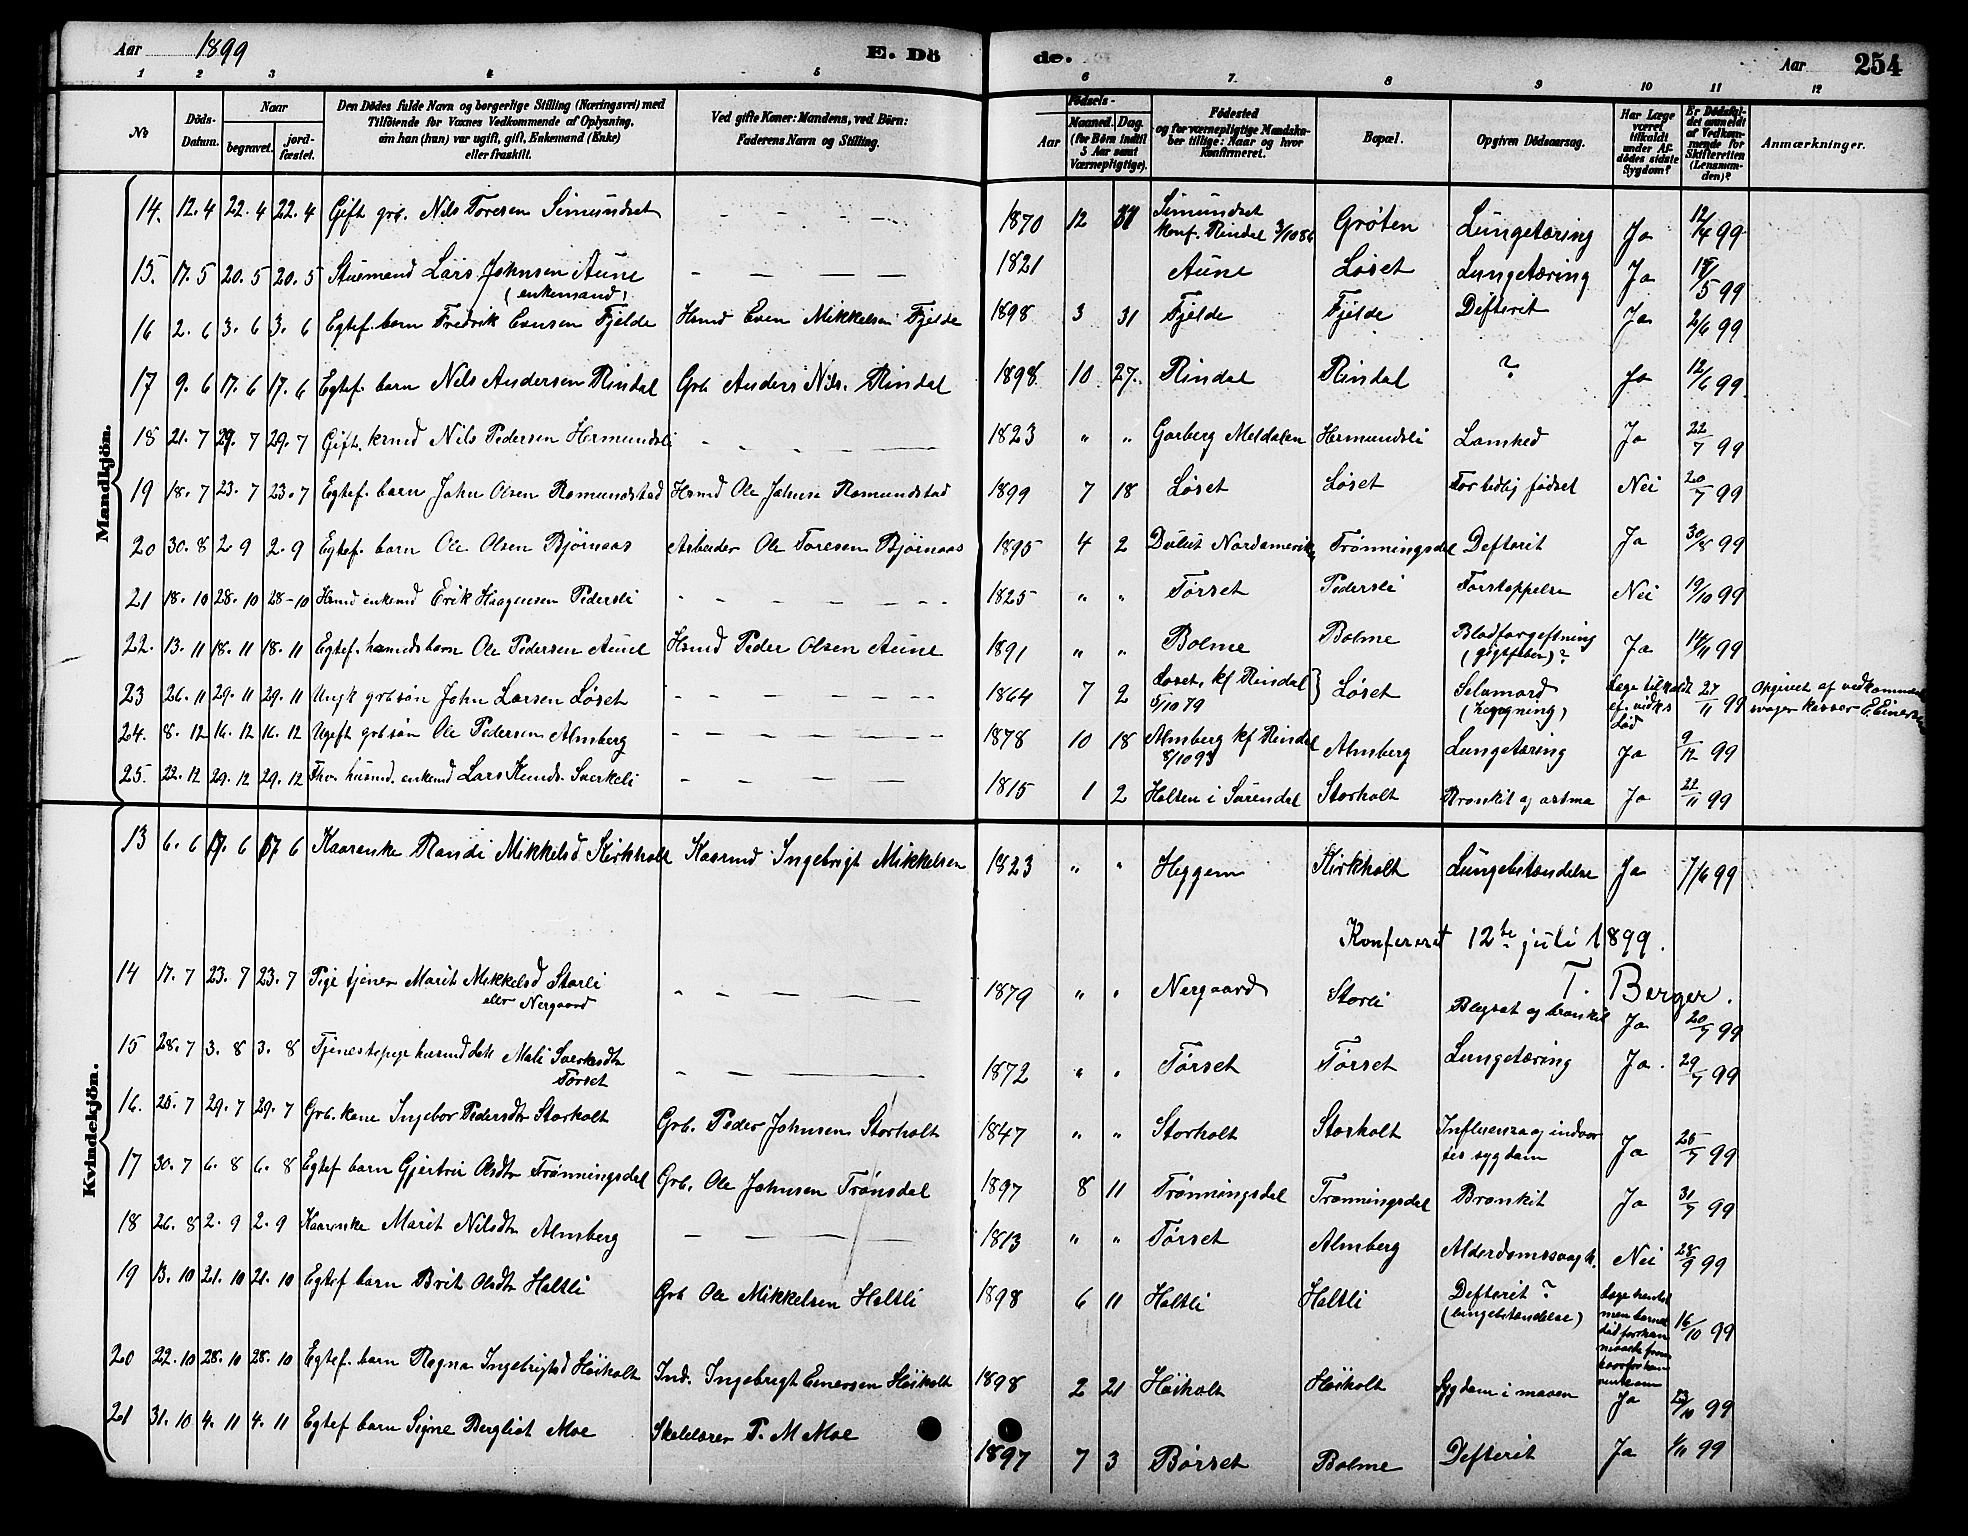 Aar 1899 E. Dö de. Aar 254
1 2 3 4 5 6 7. 8 9 10 11 12
No
Döds-Datum.
Naar
begravet.
jord-fæstet.
Den Dödes fulde Navn og borgerlige Stilling (Næringsvei) med
Tilföiende for Voxnes Vedkommende af Oplysning,
om han (hun) var ugift, gift, Enkemand (Enke)
eller fraskilt.
Ved gifte Koner: Mandens, ved Börn:
Faderens Navn og Stilling.
Födsels-
Aar
Maaned. Dag.
(for Börn indtil 5 Aar samt Værnepligtige).
Födested
og for værnepligtige Mandska-
ber tillige: Naar og hvor
Konfirmeret.
Bopæl.
Opgiven Dödsaarsag.
Har Læge været tilkaldt under Afdödes sidste Sygdom?
Er Dödsfaldet anmeldt af Vedkommende for Skifteretten (Lensmanden)?
Anmærkninger.
Mandkjön.
14. 12. 4 22. 4 22. 4 Gift grb. Nils Toresen Simundset — — — — 1870 12 31 Simundset konf. Rindal 3/10 86 Grøten Lungetæring Ja 12/4 99
15. 17. 5 20. 5 20. 5 Stuemand Lars Johnsen Aune (enkemand) — — — — 1821 Aune Løset Lungetæring Ja 18/5 99
16 2. 6 3. 6 3. 6 Egtef. barn Fredrik Evensen Fjelde Hsmd Even Mikkelsen Fjelde 1898 3 31 Fjelde Fjelde Defterit Ja 2/6 99
17 9. 6 17. 6 17. 6 Egtef. barn Nils Andersen Rindal Grb Anders Nils. Rindal 1898 10 27. Rindal Rindal ? Ja 12/6 99.
18 21. 7 29. 7 29. 7 Gift. krmd Nils Pedersen Hermundsli - - — — — 1823 " " Garberg Meldalen Hermundsli Lamhed Ja 22/7 99
19 18. 7 23. 7 23. 7 Egtef. barn John Olsen Romundstad Hsmd Ole Johnsen Romundstad 1899 7 18 Løset Løset For tidlig født Nei 20/7 99
20 30. 8 2 9 2. 9 Egtef. barn Ole Olsen Bjørnaas Arbeider Ole Toresen Bjørnaas 1895 4 2 Dulut Nordamerik Trønningsdal Defterit Ja 30/8 99
21 18. 10 28. 10 28-10 Hsmd enkemd Erik Haagensen Pedersli - - - - - - 1825 " " Tørset Pedersli Forstoppelse Nei 19/10 99
22. 13. 11 18. 11 18. 11 Egtef. hsmdsbarn Ole Pedersen Aune Hsmd Peder Olsen Aune 1891 " " Bolme Bolme Blodforgiftning (gigtfeber)? Ja 14/11 99
23 26. 11 29. 11 29. 11 Ungk grbsøn John Larsen Løset - - — — — 1864 7 2 Løset, kf Rindal 5/10 79 } Løset Selvmord (hængning) Læge tilkaldt ef. vidks Død 27/11 99 Opgivet af vedkommende svoger kasser E. Einersen
24. 8. 12 16. 12 16. 12 Ugift grbsøn Ole Pedersen Almberg - - — — — 1878 10 18 Almberg kf Rindal 8/10 93 Almberg Lungetæring Ja 9/12 99
25. 22. 12 29. 12 29. 12 Fhv. husmd. enkemd Lars Knuds. Sverkeli - - — — — 1815 1 2 Holten i Surendal Storholt Bronkit og astma Ja 22/11 99
Kvindekjön.
13 6. 6 17. 6 17 6 Kaarenke Randi Mikkelsd Kirkholt Kaarmd Ingebrigt Mikkelsen 1823 " " Heggem Kirkholt Lungebetændelse Ja 7/6 99
Konfereret 12te juli 1899.
T. Berger.
14 17. 7 23. 7 23. 7 Pige tjener Marit Mikkelsd Storli eller Nergaard - - — — — 1879 " " Nergaard Storli Blegsot og bronkit Ja 20/7 99
15 28. 7 3. 8 3. 8 Tjenestepige husmd datt Mali Sverkesdtr Tørset - - — — — 1872 " " Tørset Tørset Lungetæring Ja. 29/7 99
16. 25. 7 29. 7 29. 7 Grb. kone Ingebor Pedersdtr Storholt Grb. Peder Johnsen Storholt 1847 " " Storholt Storholt Influensa og indvortes sygdom Ja 26/7 99
17 30. 7 6. 8 6. 8 Egtef barn Gjertru Olsdtr Trønningsdal Grb. Ole Johnsen Trønsdal 1897 8 11 Trønningsdal Trønningsdal Bronkit Ja 31/7 99
18 26. 8 2. 9 2. 9 Kaarenke Marit Nilsdtr Almberg — — — — — 1813 " " Tørset Almberg Alderdomssvagh. Nei 28/9 99
19 13. 10 21. 10 21. 10 Egtef barn Brit Olsdtr Holtli Grb Ole Mikkelsen Holtli 1898 6 11 Holtli Holtli Defterit ? (lungebetændelse) Læge hentet men barnet 16/10 99
20 22. 10 28. 10 28. 10 Egtef. barn Ragna Ingebrigtsd Høiholt Ind. Ingebrigt Einersen Høiholt 1898 2 21 Høiholt Høiholt Sygdom i maven Ja 23/10 99
21 31. 10 4. 11 4. 11 Egtef barn Signe Bergliot Moe Skolelærer P. M Moe 1897 7 3 Børset Bolme Defterit Ja 1/11 99